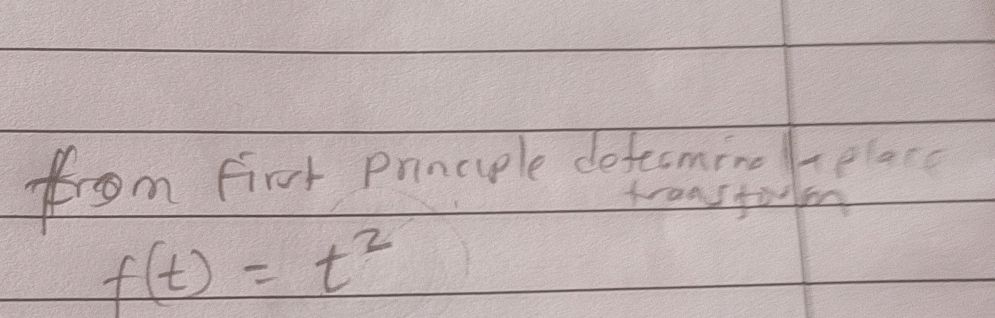 from first principle determine laplace
transform
f(t) = t²